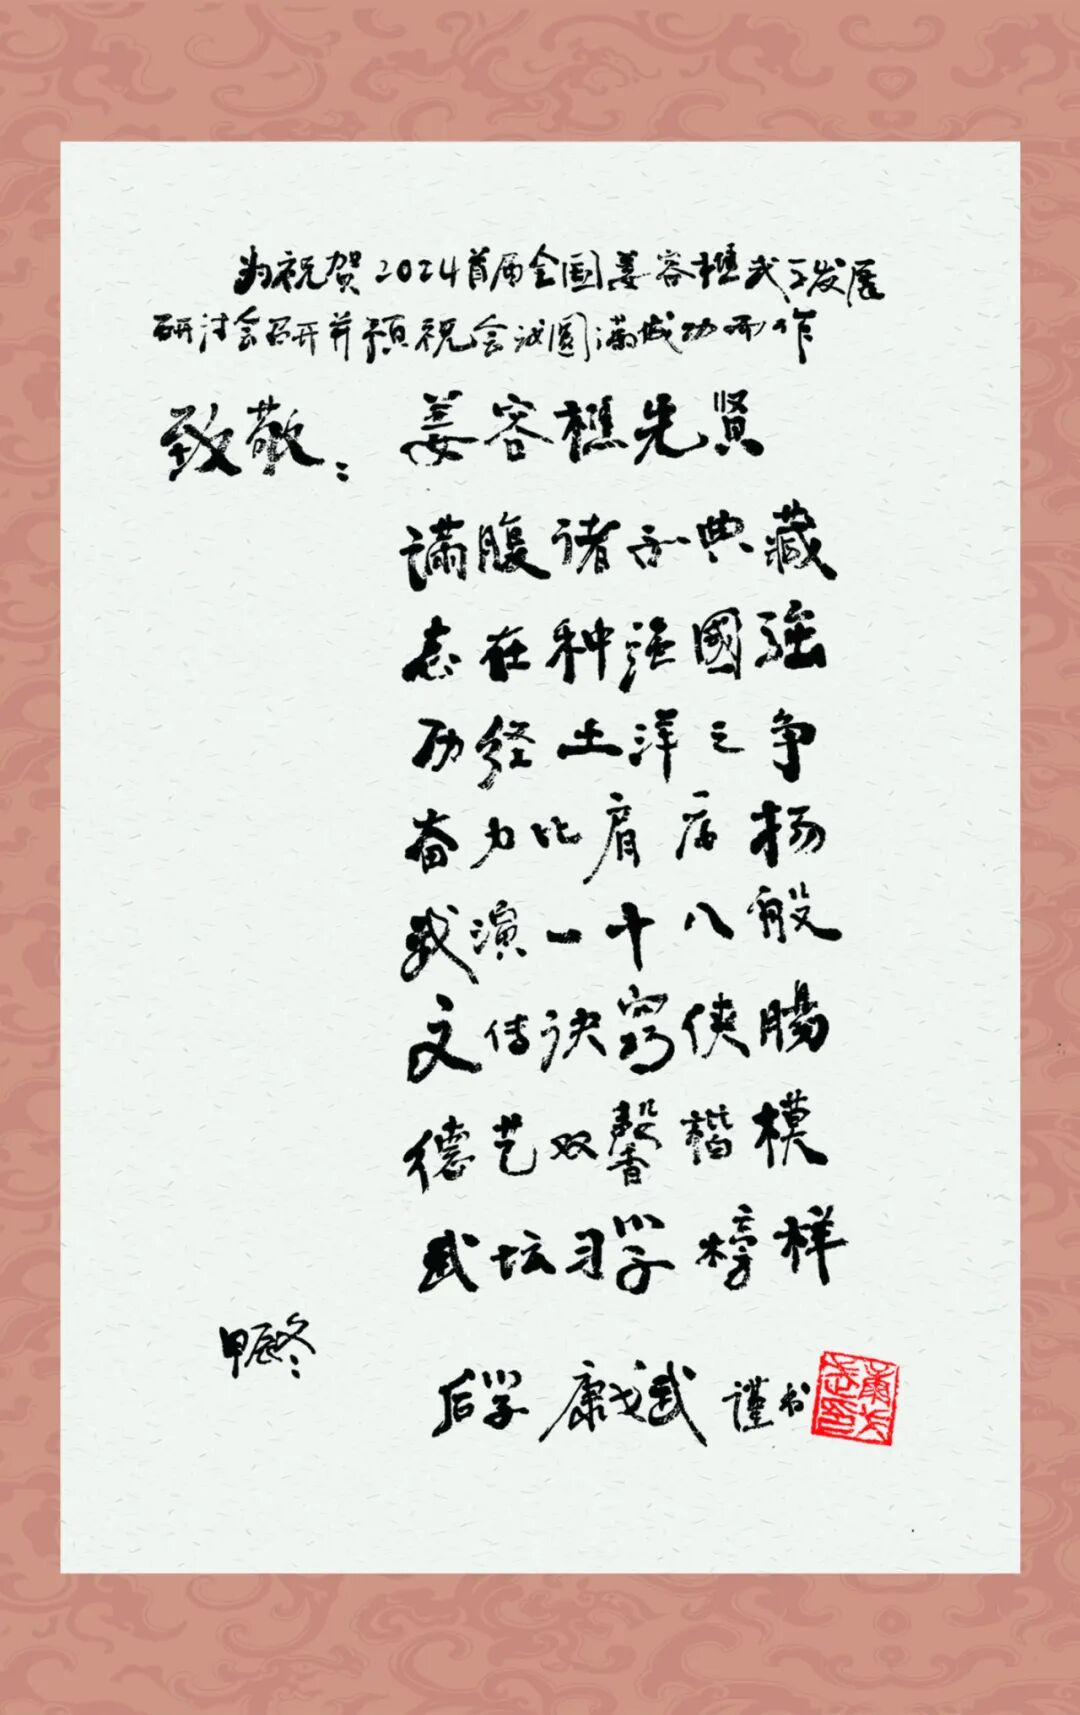 为祝贺2024首届全国姜容樵武学发展
研讨会召开并预祝会议圆满成功而作
致敬：姜容樵先贤
满腹诸子典藏
志在种强國强
历经土洋之争
奋力比肩序扬
武演一十八般
文传诀窍侠肠
德艺双馨楷模
武坛习学榜样
甲辰冬
后学康戈武谨书